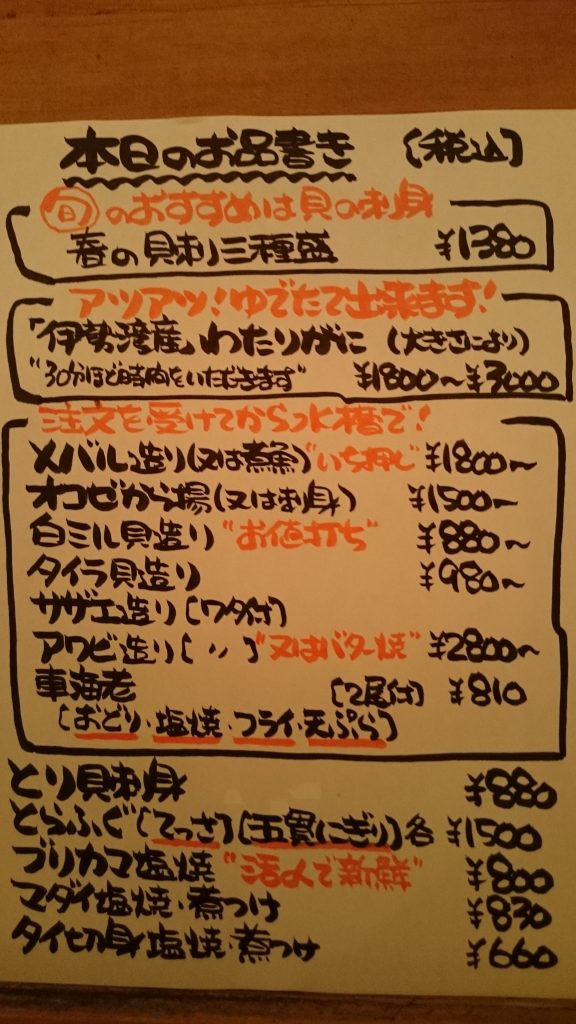 本日のお品書き [税込]
旬のおすすめは貝の刺身
春の貝刺三種盛 ¥1380
アツアツ!ゆでたて出来ます!
「伊勢湾産」わたりがに (大きさにより)
"30分ほど時間をいただきます" ¥1800〜¥3000
注文を受けてから水槽で!
メバル造り(又は煮魚)"いち押し" ¥1800〜
オコゼから揚(又は刺身) ¥1500〜
白ミル貝造り "お値打ち" ¥880〜
タイラ貝造り ¥980〜
サザエ造り[ワタ付]
アワビ造り[〃]"又はバター焼" ¥2800〜
車海老 [2尾付] ¥810
[おどり・塩焼・フライ・天ぷら]
とり貝刺身 ¥880
とらふぐ[てっさ][五貫にぎり]各 ¥1500
ブリカマ塩焼 "活〆で新鮮" ¥800
マダイ塩焼・煮つけ ¥830
タイ切身塩焼・煮つけ ¥660